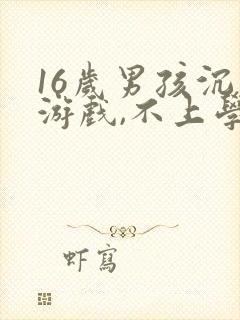 16歲男孩沉
游戲,不上學
虾寫